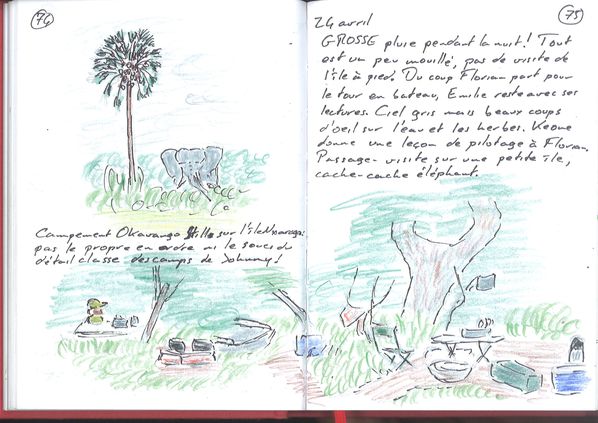 74
Campement Okavango Stills sur l'île
pas le propre en ordre ni le souci du
détail classe des camps de Johnny!
75
24 avril
GROSSE pluie pendant la nuit! Tout
est un peu mouillé, pas de visite de
l'île à pied. Du coup Florian part pour
le tour en bateau, Emilie reste avec ses
lectures. Ciel gris mais beaux coups
d'oeil sur l'eau et les herbes. Keone
donne une leçon de pilotage à Florian.
Passage-visite sur une petite île,
cache-cache éléphant.